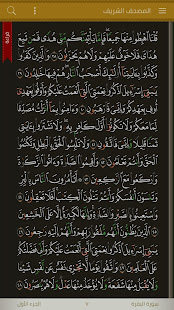 المصحف الشريف
قراءة
قُلْنَا ٱهْبِطُوا۟ مِنْهَا جَمِيعًا ۖ فَإِمَّا يَأْتِيَنَّكُم مِّنِّى هُدًى فَمَن تَبِعَ
هُدَاىَ فَلَا خَوْفٌ عَلَيْهِمْ وَلَا هُمْ يَحْزَنُونَ ٣٨ وَٱلَّذِينَ كَفَرُوا۟
وَكَذَّبُوا۟ بِـَٔايَٰتِنَآ أُو۟لَٰٓئِكَ أَصْحَٰبُ ٱلنَّارِ ۖ هُمْ فِيهَا خَٰلِدُونَ ٣٩
يَٰبَنِىٓ إِسْرَٰٓءِيلَ ٱذْكُرُوا۟ نِعْمَتِىَ ٱلَّتِىٓ أَنْعَمْتُ عَلَيْكُمْ وَأَوْفُوا۟
بِعَهْدِىٓ أُوفِ بِعَهْدِكُمْ وَإِيَّٰىَ فَٱرْهَبُونِ ٤٠ وَءَامِنُوا۟ بِمَآ أَنزَلْتُ
مُصَدِّقًا لِّمَا مَعَكُمْ وَلَا تَكُونُوٓا۟ أَوَّلَ كَافِرٍۭ بِهِۦ ۖ وَلَا تَشْتَرُوا۟
بِـَٔايَٰتِى ثَمَنًا قَلِيلًا وَإِيَّٰىَ فَٱتَّقُونِ ٤١ وَلَا تَلْبِسُوا۟ ٱلْحَقَّ
بِٱلْبَٰطِلِ وَتَكْتُمُوا۟ ٱلْحَقَّ وَأَنتُمْ تَعْلَمُونَ ٤٢ وَأَقِيمُوا۟ ٱلصَّلَوٰةَ وَءَاتُوا۟ ٱلزَّكَوٰةَ
وَٱرْكَعُوا۟ مَعَ ٱلرَّٰكِعِينَ ٤٣ ۞ أَتَأْمُرُونَ ٱلنَّاسَ بِٱلْبِرِّ
وَتَنسَوْنَ أَنفُسَكُمْ وَأَنتُمْ تَتْلُونَ ٱلْكِتَٰبَ ۚ أَفَلَا تَعْقِلُونَ ٤٤
وَٱسْتَعِينُوا۟ بِٱلصَّبْرِ وَٱلصَّلَوٰةِ ۚ وَإِنَّهَا لَكَبِيرَةٌ إِلَّا عَلَى ٱلْخَٰشِعِينَ ٤٥
ٱلَّذِينَ يَظُنُّونَ أَنَّهُم مُّلَٰقُوا۟ رَبِّهِمْ وَأَنَّهُمْ إِلَيْهِ رَٰجِعُونَ ٤٦
يَٰبَنِىٓ إِسْرَٰٓءِيلَ ٱذْكُرُوا۟ نِعْمَتِىَ ٱلَّتِىٓ أَنْعَمْتُ عَلَيْكُمْ وَأَنِّى
فَضَّلْتُكُمْ عَلَى ٱلْعَٰلَمِينَ ٤٧ وَٱتَّقُوا۟ يَوْمًا لَّا تَجْزِى نَفْسٌ عَن نَّفْسٍ شَيْـًٔا
وَلَا يُقْبَلُ مِنْهَا شَفَٰعَةٌ وَلَا يُؤْخَذُ مِنْهَا عَدْلٌ وَلَا هُمْ يُنصَرُونَ ٤٨
سورة البقرة ٧ الجزء الأول